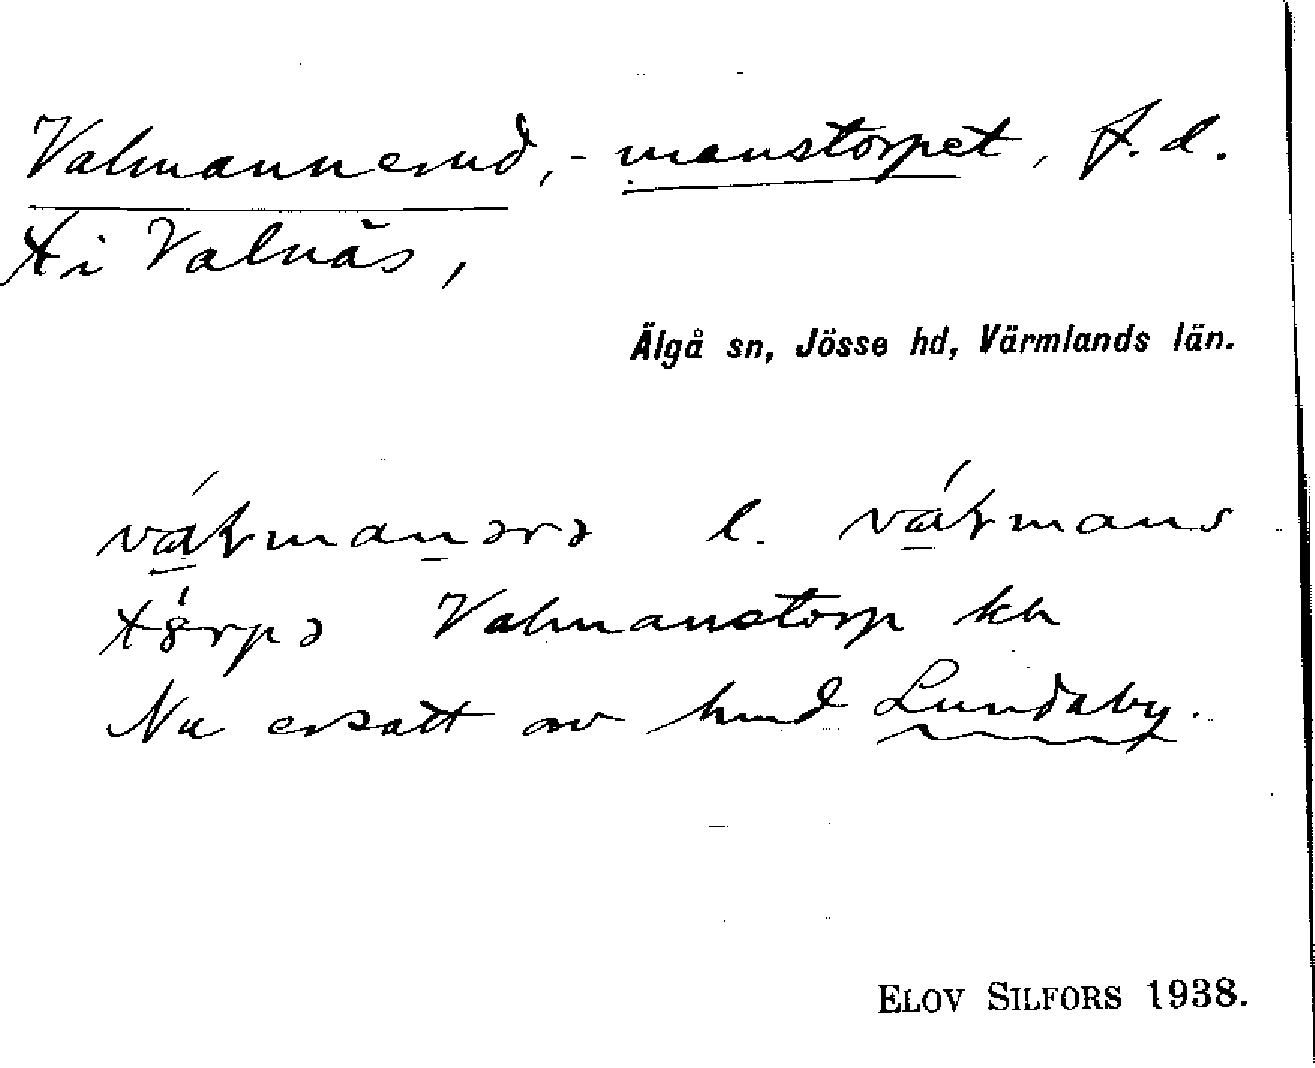 Valmannerud, -manstorpet, f. d.
t i Valnäs,
Älgå sn, Jösse hd, Värmlands län.
l.
Valmanstorp kh
Nu ersatt av hmd Lundaby.
ELOV SILFORS 1938.